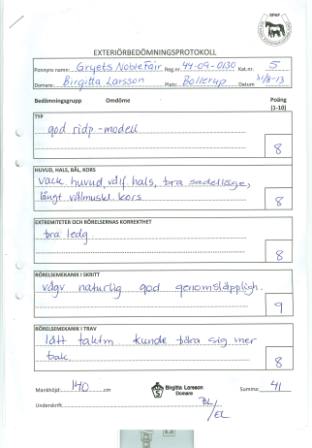 EXTERIÖRBEDÖMNINGSPROTOKOLL
Ponnyns namn: Gryets Noble Fair Reg.nr 44-09-0130 Kat.nr. 5
Domare: Birgitta Larsson Plats: Bollerup Datum 31/8-13
Bedömningsgrupp Omdöme Poäng
(1-10)
TYP
god ridp.-modell
8
HUVUD, HALS, BÅL, KORS
vack. huvud, välf. hals, bra sadelläge,
långt välmuskl. kors
8
EXTREMITETER OCH RÖRELSERNAS KORREKTHET
bra ledg.
8
RÖRELSEMEKANIK I SKRITT
vägv. naturlig god genomsläppligh.
9
RÖRELSEMEKANIK I TRAV
lätt taktm. kunde bära sig mer
bak.
8
Mankhöjd 140 cm Birgitta Larsson Summa: 41
Domare
Underskrift BL/EL